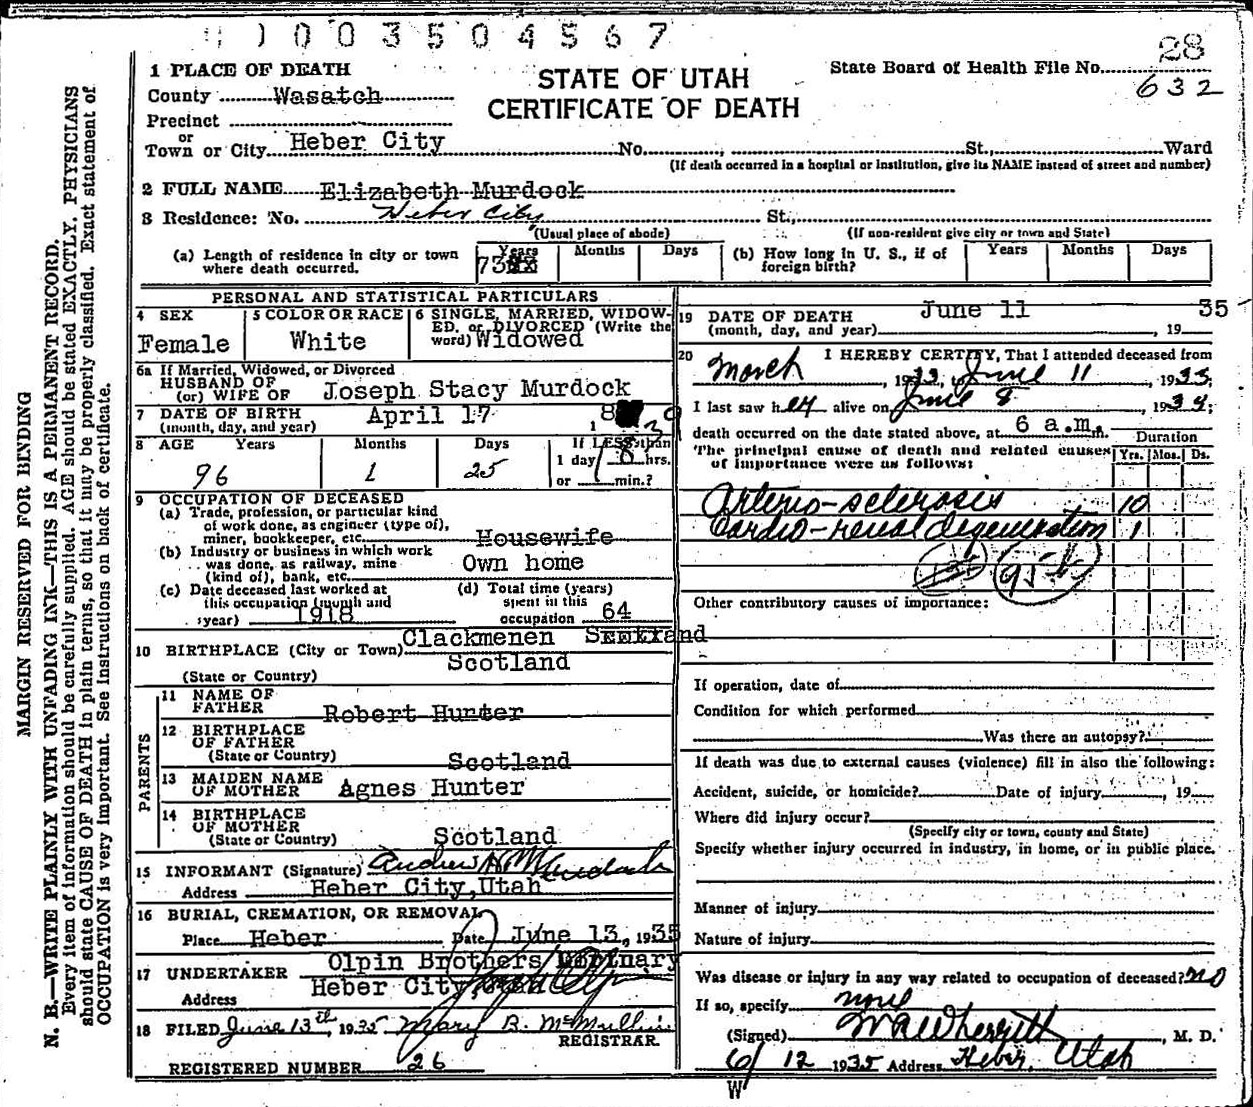 0 0 0 3 5 0 4 5 6 7
28
1 PLACE OF DEATH
STATE OF UTAH
State Board of Health File No.
632
County Wasatch
CERTIFICATE OF DEATH
Precinct
or
Town or City Heber City No. , St., Ward
(If death occurred in a hospital or institution, give its NAME instead of street and number)
2 FULL NAME Elizabeth Murdock
3 Residence: No. Heber City St.,
(Usual place of abode) (If non-resident give city or town and State)
(a) Length of residence in city or town where death occurred. Years 73 Months Days
(b) How long in U. S., if of foreign birth? Years Months Days
PERSONAL AND STATISTICAL PARTICULARS
4 SEX Female
5 COLOR OR RACE White
6 SINGLE, MARRIED, WIDOWED, or DIVORCED (Write the word) Widowed
6a If Married, Widowed, or Divorced
HUSBAND OF
(or) WIFE OF Joseph Stacy Murdock
7 DATE OF BIRTH April 17 18
(month, day, and year)
8 AGE Years 96 Months 1 Days 25 If LESS than 1 day hrs. or min.?
9 OCCUPATION OF DECEASED
(a) Trade, profession, or particular kind
of work done, as engineer (type of),
miner, bookkeeper, etc. Housewife
(b) Industry or business in which work
was done, as railway, mine Own home
(kind of), bank, etc.
(c) Date deceased last worked at
this occupation (month and
year) 1918
(d) Total time (years)
spent in this
occupation 64
Clackmenen
10 BIRTHPLACE (City or Town)
Scotland
(State or Country)
PARENTS
11 NAME OF FATHER Robert Hunter
12 BIRTHPLACE OF FATHER
(State or Country) Scotland
13 MAIDEN NAME OF MOTHER Agnes Hunter
14 BIRTHPLACE OF MOTHER
(State or Country) Scotland
15 INFORMANT (Signature) Andrew H M Murdock
Address Heber City, Utah
16 BURIAL, CREMATION, OR REMOVAL
Place Heber Date June 13, 1935
17 UNDERTAKER Olpin Brothers Mortuary
Address Heber City,
18 FILED June 13th, 1935 Mary B. McMullin
REGISTRAR.
REGISTERED NUMBER 26
19 DATE OF DEATH June 11 , 19 35
(month, day, and year)
20 I HEREBY CERTIFY, That I attended deceased from
March , 1933, to June 11 , 1935;
I last saw her alive on June 8 , 193 ;
death occurred on the date stated above, at 6 a.m. m.
Duration
The principal cause of death and related causes of importance were as follows:
Yrs. Mos. Ds.
Arterio-sclerosis 10
Cardio-renal degeneration 1
Other contributory causes of importance:
If operation, date of
Condition for which performed
Was there an autopsy?
If death was due to external causes (violence) fill in also the following:
Accident, suicide, or homicide? Date of injury , 19
Where did injury occur?
(Specify city or town, county and State)
Specify whether injury occurred in industry, in home, or in public place.
Manner of injury
Nature of injury
Was disease or injury in any way related to occupation of deceased? no
If so, specify none
(Signed) , M. D.
6/12 1935 Address Heber, Utah
W
MARGIN RESERVED FOR BINDING
N. B.—WRITE PLAINLY WITH UNFADING INK—THIS IS A PERMANENT RECORD.
Every item of information should be carefully supplied. AGE should be stated EXACTLY. PHYSICIANS
should state CAUSE OF DEATH in plain terms, so that it may be properly classified. Exact statement of
OCCUPATION is very important. See instructions on back of certificate.